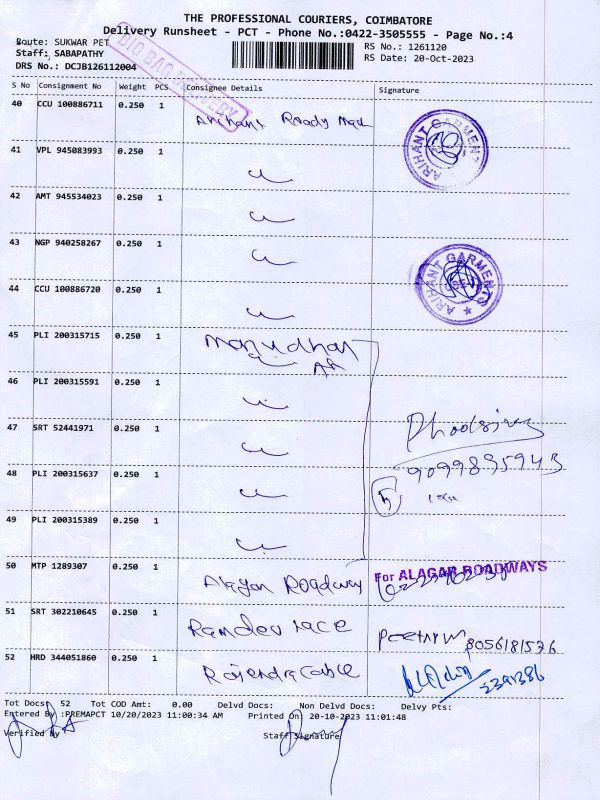 THE PROFESSIONAL COURIERS, COIMBATORE
Delivery Runsheet - PCT - Phone No.:0422-3505555 - Page No.:4
Route: SUKWAR PET
RS No.: 1261120
Staff: SABAPATHY
RS Date: 20-Oct-2023
DRS No.: DCJB126112004
BIG BAG DELIVERY
S No Consignment No Weight PCS Consignee Details Signature
40 CCU 100886711 0.250 1 Arihant Ready Mad
ARIHANT GARMENTS
41 VPL 945083993 0.250 1
42 AMT 945534023 0.250 1
43 NGP 940258267 0.250 1
ARIHANT GARMENTS
44 CCU 100886720 0.250 1
45 PLI 200315715 0.250 1 Manudhar
46 PLI 200315591 0.250 1
47 SRT 52441971 0.250 1
9099835943
48 PLI 200315637 0.250 1
5
49 PLI 200315389 0.250 1
50 MTP 1289307 0.250 1 Alagar Roadway For ALAGAR ROADWAYS
51 SRT 302210645 0.250 1 Ramdev lace 8056181576
52 HRD 344051860 0.250 1 Rajendra Cable
Tot Docs: 52 Tot COD Amt: 0.00 Delvd Docs: Non Delvd Docs: Delvy Pts:
Entered By :PREMAPCT 10/20/2023 11:00:34 AM Printed On 20-10-2023 11:01:48
Verified By Staff Signature